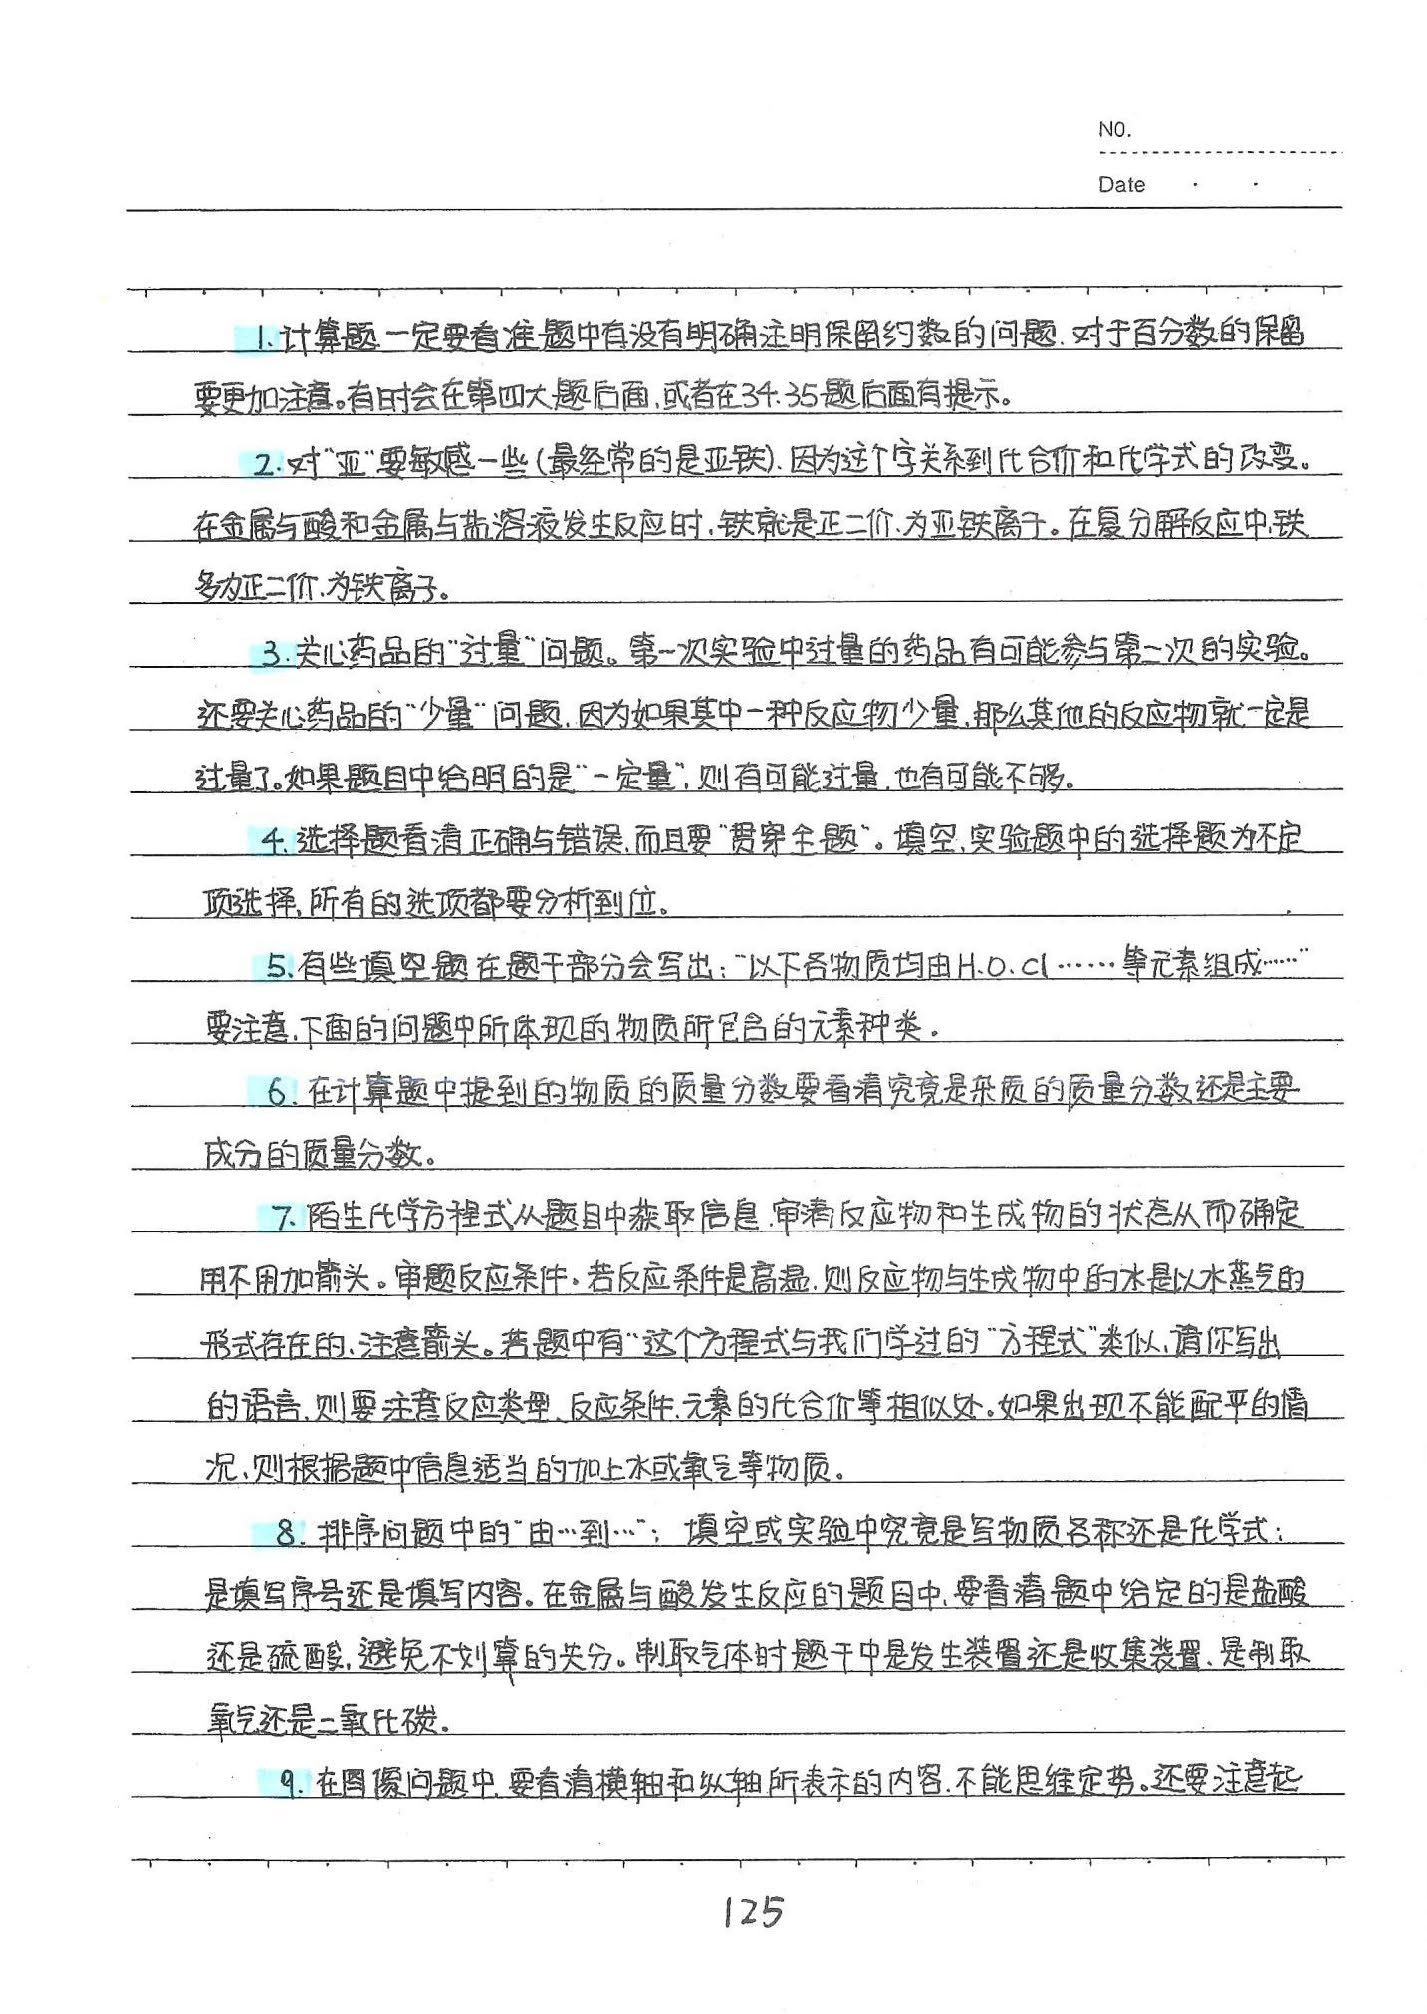 NO.
Date
1. 计算题一定要看准题中有没有明确注明保留约数的问题.对于百分数的保留
要更加注意。有时会在第四大题后面,或者在34.35题后面有提示。
2. 对“亚”要敏感一些(最经常的是亚铁).因为这个字关系到化合价和化学式的改变。
在金属与酸和金属与盐溶液发生反应时,铁就是正二价,为亚铁离子。在复分解反应中,铁
多为正二价,为铁离子。
3. 关心药品的“过量”问题。第一次实验中过量的药品有可能参与第二次的实验。
还要关心药品的“少量”问题.因为如果其中一种反应物少量,那么其他的反应物就一定是
过量了。如果题目中给明的是“一定量”,则有可能过量,也有可能不够。
4. 选择题看清正确与错误,而且要“贯穿全题”。填空,实验题中的选择题为不定
项选择,所有的选项都要分析到位。
5. 有些填空题在题干部分会写出:“以下各物质均由H.O.Cl……等元素组成……”
要注意,下面的问题中所体现的物质所包含的元素种类。
6. 在计算题中提到的物质的质量分数要看清究竟是杂质的质量分数还是主要
成分的质量分数。
7. 陌生化学方程式从题目中获取信息.审清反应物和生成物的状态从而确定
用不用加箭头。审题反应条件.若反应条件是高温,则反应物与生成物中的水是以水蒸气的
形式存在的,注意箭头。若题中有“这个方程式与我们学过的“方程式”类似,请你写出
的语言,则要注意反应类型、反应条件.元素的化合价等相似处。如果出现不能配平的情
况,则根据题中信息适当的加上水或氧气等物质。
8. 排序问题中的“由…到…”; 填空或实验中究竟是写物质名称还是化学式;
是填写序号还是填写内容。在金属与酸发生反应的题目中,要看清题中给定的是盐酸
还是硫酸,避免不划算的失分。制取气体时题干中是发生装置还是收集装置,是制取
氧气还是二氧化碳.
9. 在图像问题中,要看清横轴和纵轴所表示的内容,不能思维定势。还要注意起
125